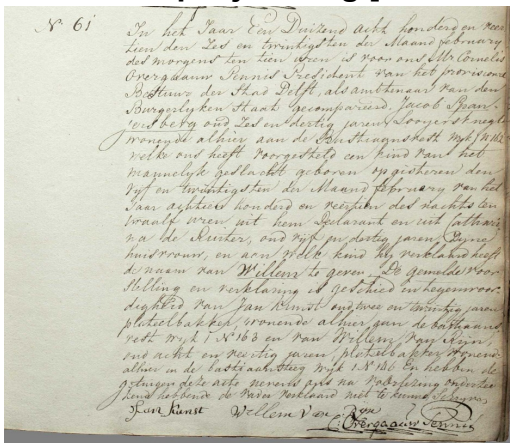 N° 61
In het Jaar Een Duizend acht honderd en veer
tien den Zes en twintigsten der Maand february
des morgens ten tien uren is voor ons Mr Cornelis
Overgaauw Pennis President van het provisioneel
Bestuur der Stad Delft, als ambtenaar van den
Burgerlyken Staat gecompareerd, Jacob Span
jersberg oud Zes en dertig jaren Looyersknegt
wonende alhier aan de Bastiaansvest wyk 1 N 162
welke ons heeft voorgesteld een kind van het
mannelyk geslacht geboren op gisteren den
vyf en twintigsten der Maand february van het
Jaar achttien honderd en veertien des nachts ten
twaalf uren uit hem Declarant en uit Cathari
na de Ruiter, oud vyf en dertig jaren Zyne
huisvrouw, en aan welk kind hy verklaard heeft
de naam van Willem te geven. De gemelde voor
stelling en verklaring is geschied in tegenwoor
digheid van Jan Kunst oud twee en twintig jaren
plateelbakker, wonende alhier aan de
vest wyk 1 N 163 en van Willem van Ryn,
oud acht en veertig jaren, plateelbakker wonend
alhier in de Bastiaansteeg wyk 1 N 146 En hebben de
getuigen deze acte nevens ons na voorlezing onderte
kend hebbende de Vader verklaard niet te kunnen schryven
Jan Kunst Willem Van Ryn
C: Overgaauw Pennis